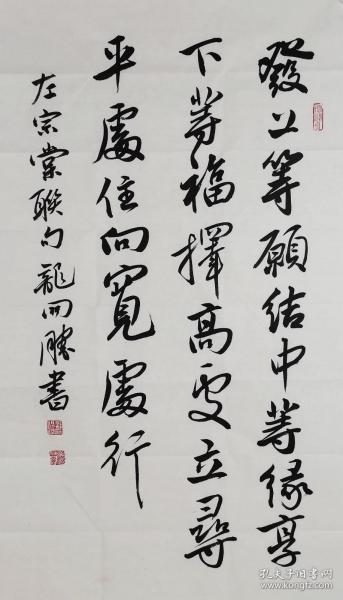 發上等願结中等緣享
下等福擇高処立尋
平處住向寬處行
左宗棠聯句龍開勝書
孔夫子旧书网
www.kongfz.com